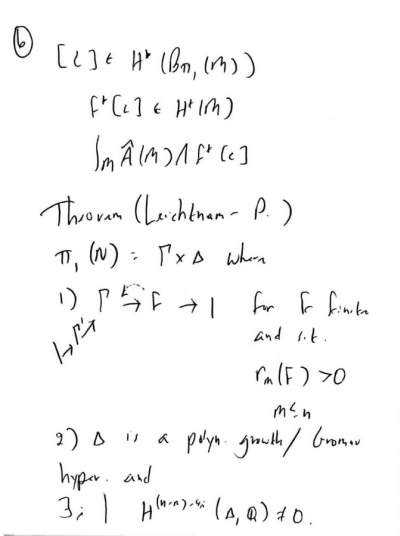 ⑥
[c] ∈ H*(Bπ₁(M))
f*[c] ∈ H*(M)
∫_M Â(M) ∧ f*[c]
Theorem (Leichtnam - P.)
π₁(N) = Γ × Δ when
1) Γ → F → 1 for F finite
1 → Γ' → and s.t.
r_m(F) > 0
m ≤ n
2) Δ is a polyn. growth / Gromov
hyper. and
∃ i | H^{(n-m)-4i}(Δ, Q) ≠ 0.